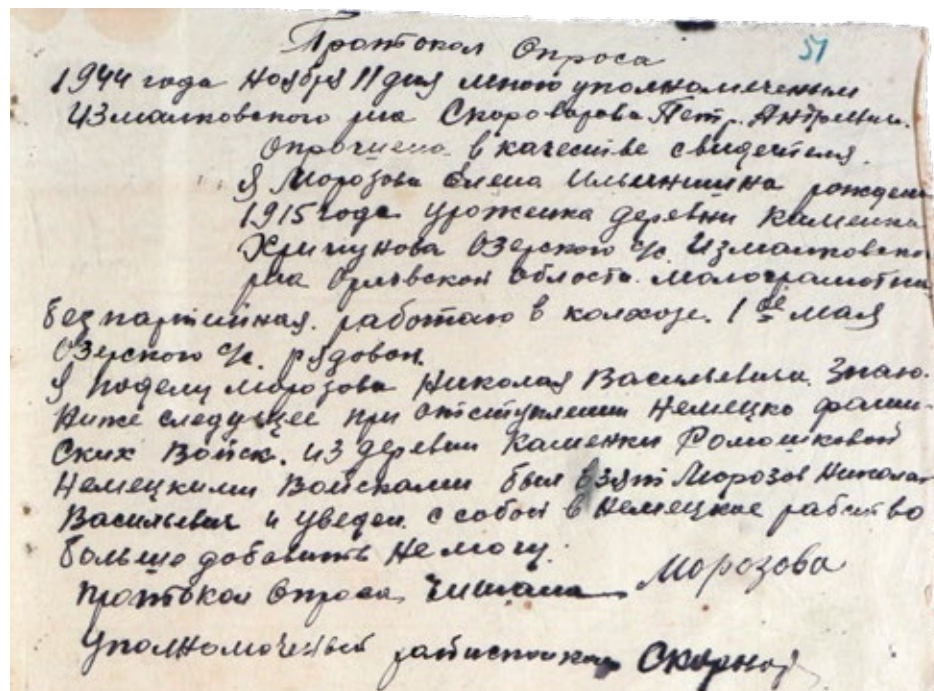 Протокол Опроса 51
1944 года Ноября 11 дня мною уполномоченным
Измалковского р-на Скороварова Петр. Андреевич.
Опрошено в качестве свидетеля.
Я Морозова Елена Ильинишна рождени
1915 года уроженка деревни Каменка
Озерского с/с. Измалковско
р-на Орловской Области. малограмотна
безпартийная. работаю в колхозе. 1 ое мая
Озерского с/с. рядовой.
Я поделу Морозова Николая Васильевича. Знаю.
Ниже следущее при отступлении Немецко фаши-
Ских Войск. из деревни Каменки Ромашковой
Немецкими Войсками был взят Морозов Никола
Васильевич и уведен с собой в Немецкое рабство
больше добавить Немогу.
протокол Опроса Читала Морозова
Уполномоченый